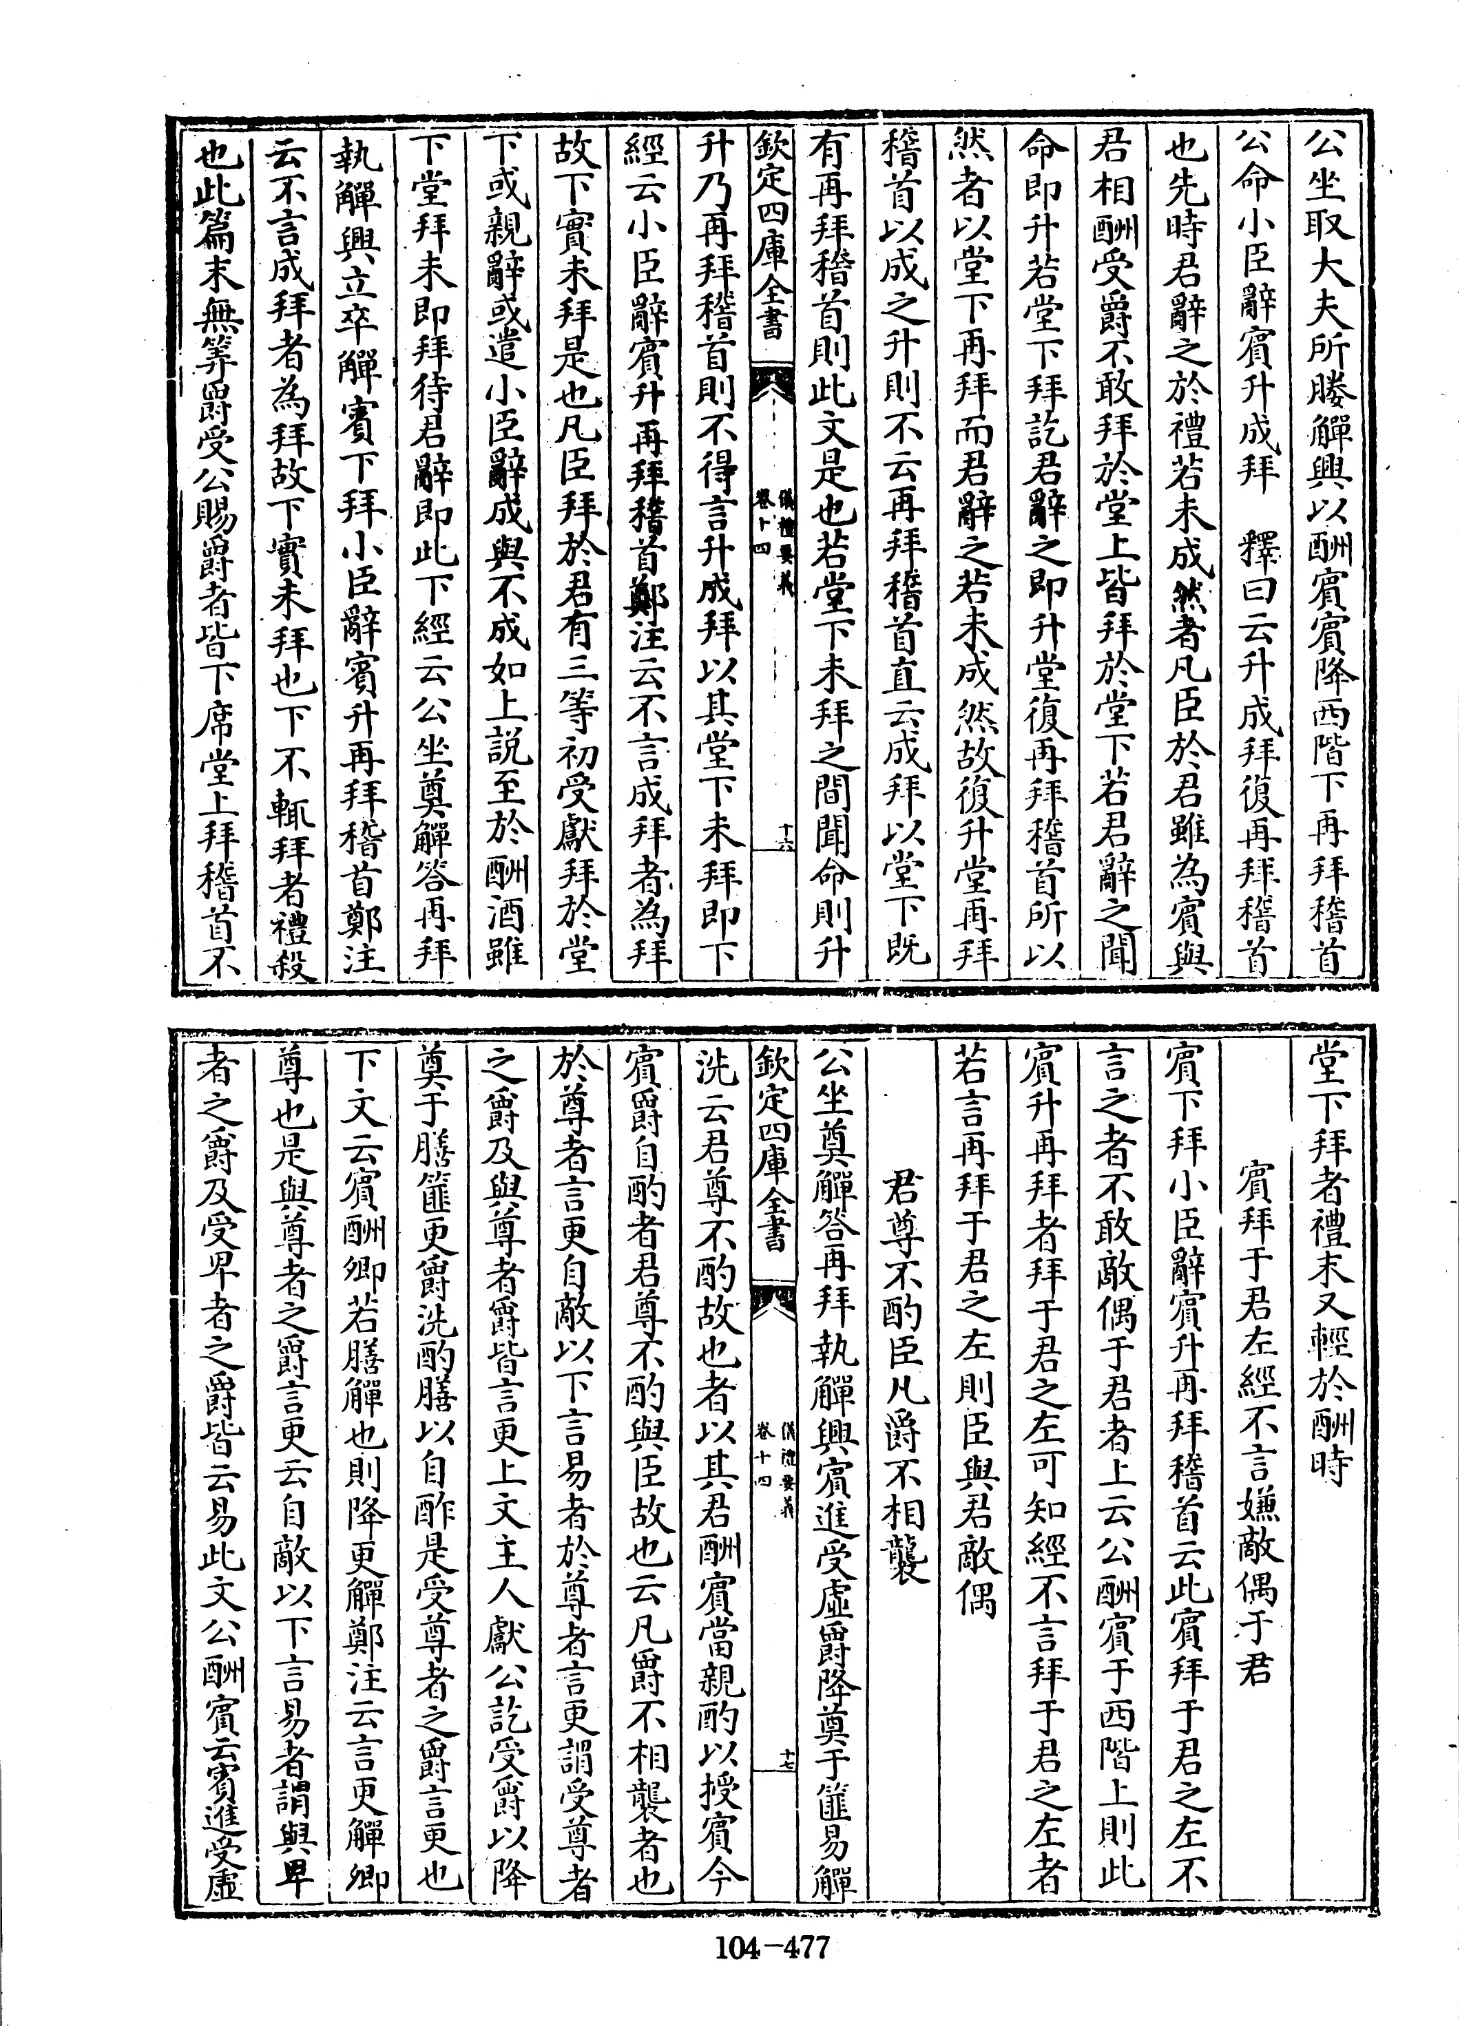 公坐取大夫所媵觶興以酬賓賓降西階下再拜稽首
公命小臣辭賓升成拜　釋曰云升成拜復再拜稽首
也先時君辭之於禮若未成然者凡臣於君雖為賓與
君相酬受爵不敢拜於堂上皆拜於堂下若君辭之聞
命即升若堂下拜訖君辭之即升堂復再拜稽首所以
然者以堂下再拜而君辭之若未成然故復升堂再拜
稽首以成之升則不云再拜稽首直云成拜以堂下既
有再拜稽首則此文是也若堂下未拜之間聞命則升
欽定四庫全書　儀禮要義卷十四　十六
升乃再拜稽首則不得言升成拜以其堂下未拜即下
經云小臣辭賓升再拜稽首鄭注云不言成拜者為拜
故下實未拜是也凡臣拜於君有三等初受獻拜於堂
下或親辭或遣小臣辭成與不成如上說至於酬酒雖
下堂拜未即拜待君辭即此下經云公坐奠觶答再拜
執觶興立卒觶賓下拜小臣辭賓升再拜稽首鄭注
云不言成拜者為拜故下實未拜也下不輒拜者禮殺
也此篇末無筭爵受公賜爵者皆下席堂上拜稽首不
堂下拜者禮末又輕於酬時
賓拜于君左經不言嫌敵偶于君
賓下拜小臣辭賓升再拜稽首云此賓拜于君之左不
言之者不敢敵偶于君者上云公酬賓于西階上則此
賓升再拜者拜于君之左可知經不言拜于君之左者
若言再拜于君之左則臣與君敵偶
君尊不酌臣凡爵不相襲
公坐奠觶答再拜執觶興賓進受虛爵降奠于篚易觶
欽定四庫全書　儀禮要義卷十四　十七
洗云君尊不酌故也者以其君酬賓當親酌以授賓今
賓爵自酌者君尊不酌與臣故也云凡爵不相襲者也
於尊者言更自敵以下言易者於尊者言更謂受尊者
之爵及與尊者爵皆言更上文主人獻公訖受爵以降
奠于膳篚更爵洗酌膳以自酢是受尊者之爵言更也
下文云賓酬卿若膳觶也則降更觶鄭注云言更觶卿
尊也是與尊者之爵言更云自敵以下言易者謂與卑
者之爵及受卑者之爵皆云易此文公酬賓云賓進受虛
104-477